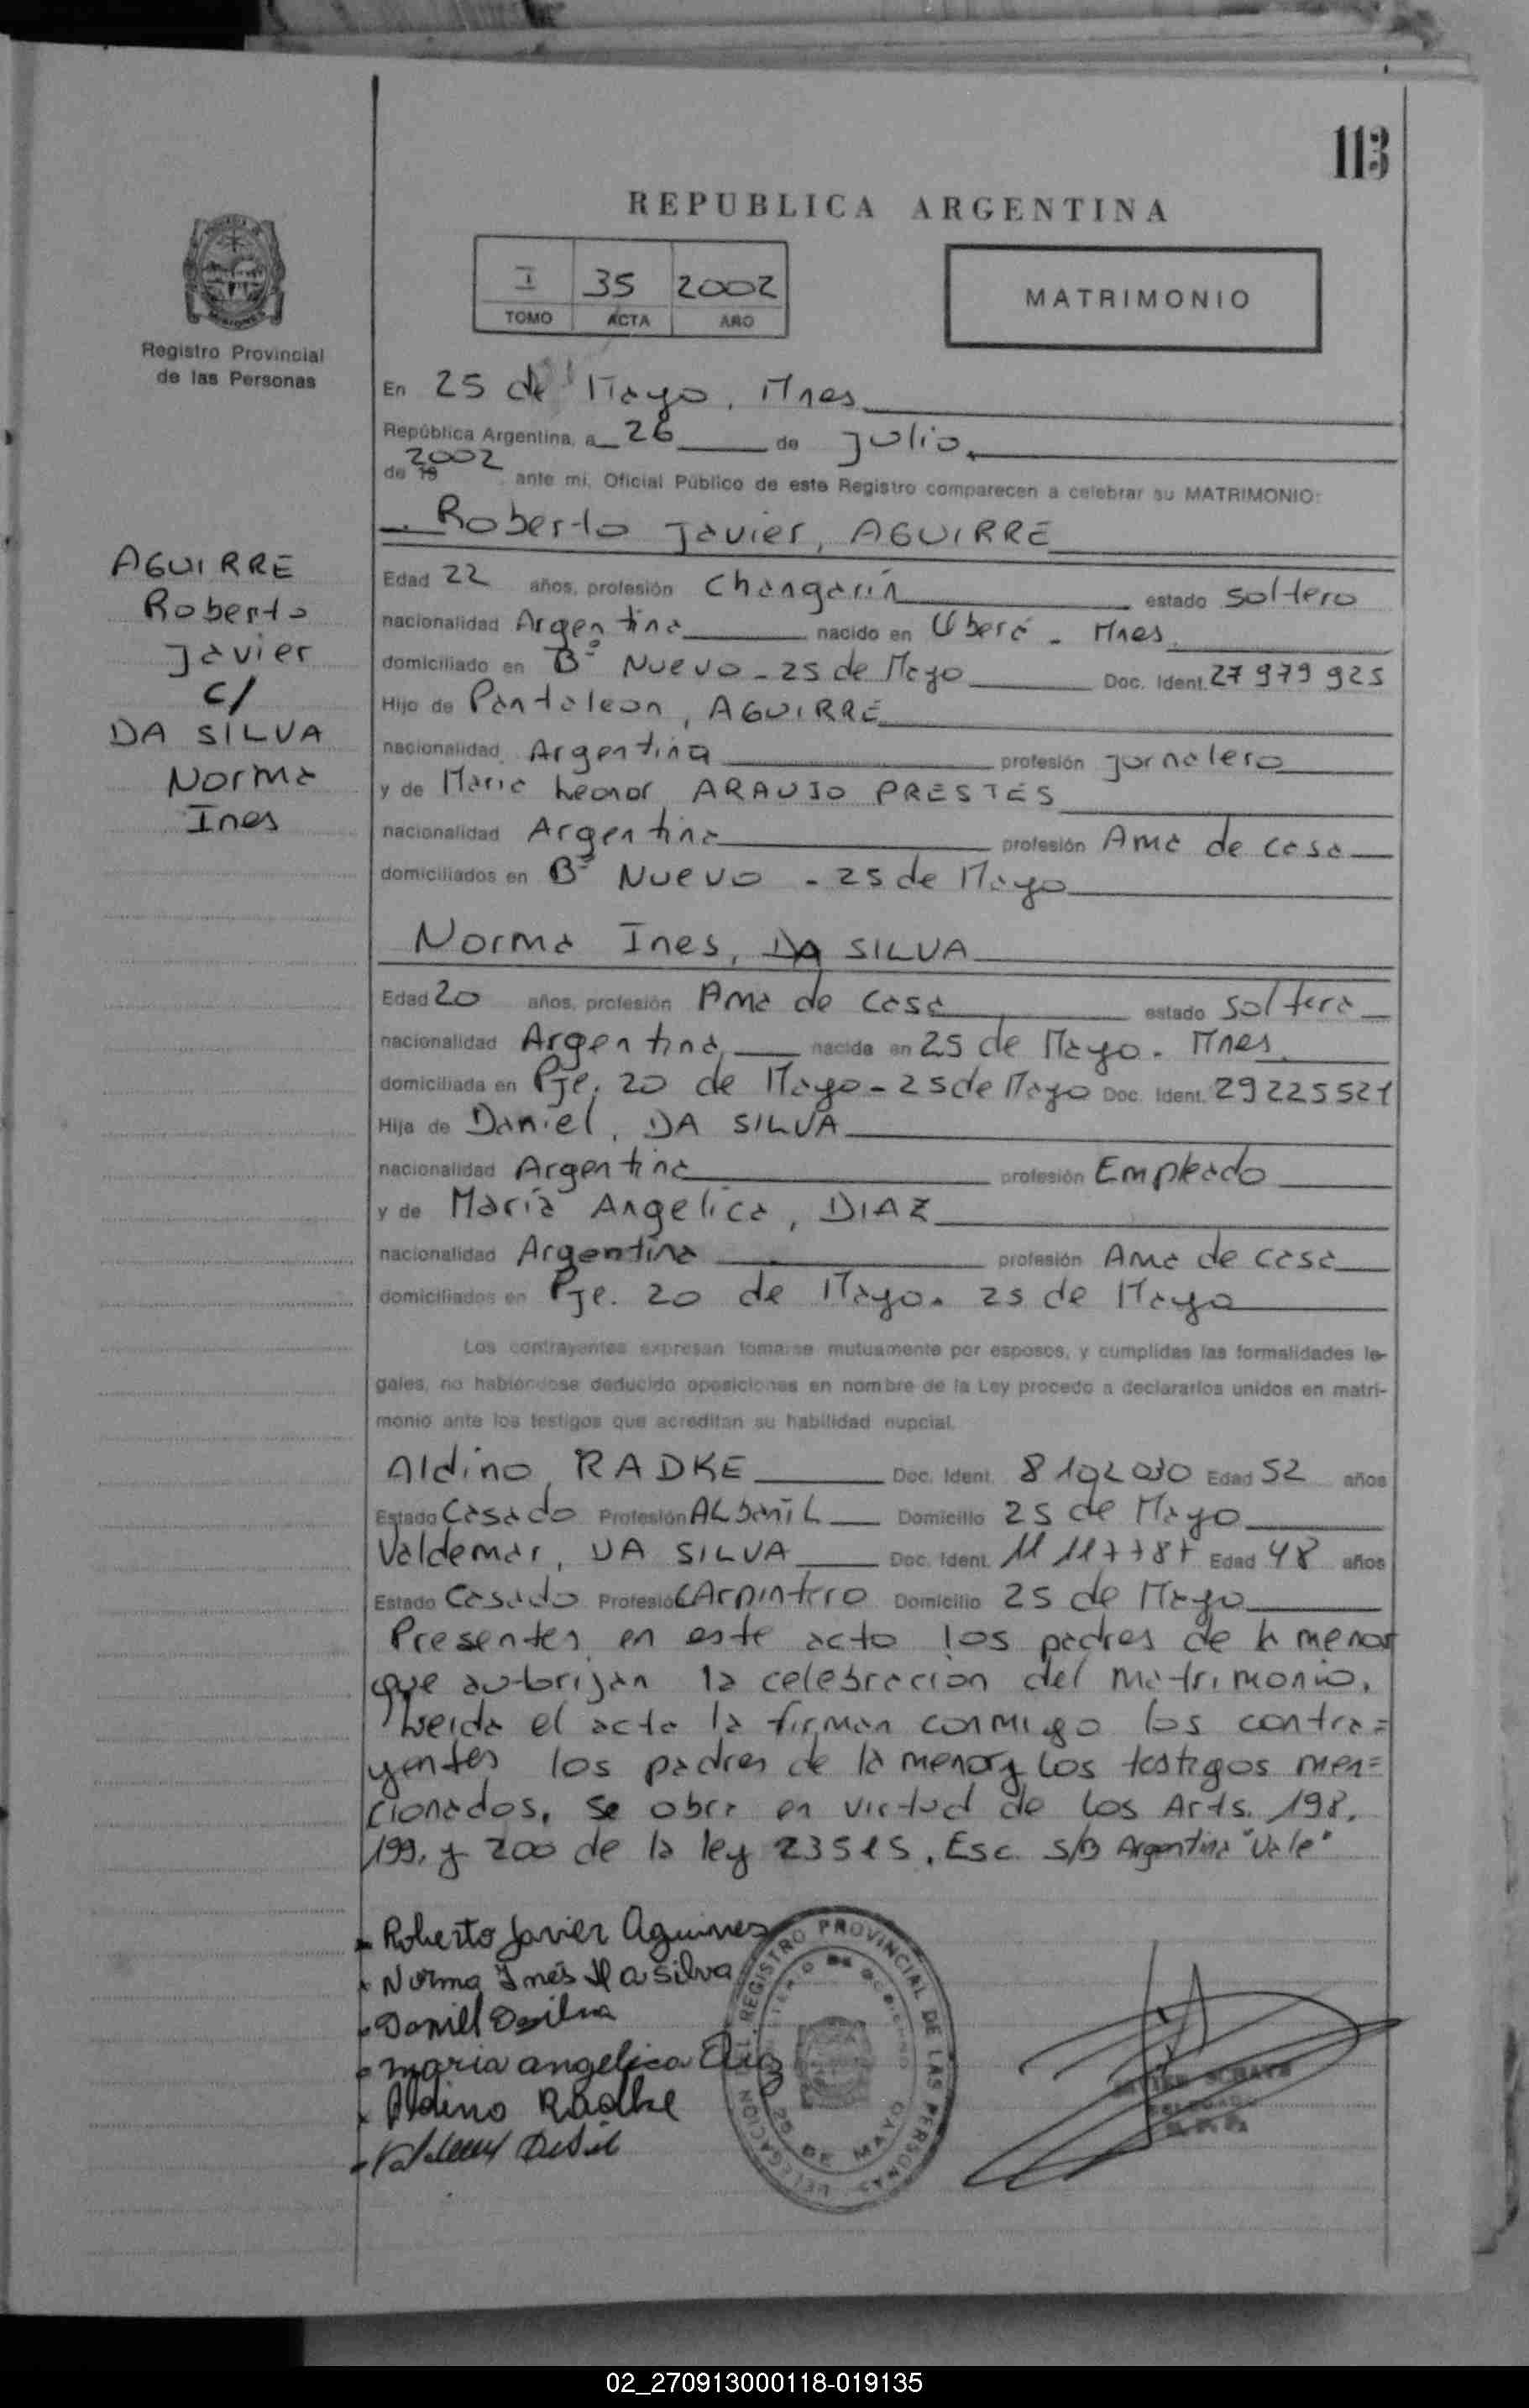 113
REPUBLICA ARGENTINA
I 35 2002
TOMO ACTA AÑO
MATRIMONIO
Registro Provincial
de las Personas
En 25 de Mayo, Mnes
República Argentina, a 26 de julio.
de 19 2002 ante mi, Oficial Público de este Registro comparecen a celebrar su MATRIMONIO:
Roberto Javier, AGUIRRE
AGUIRRE
Roberto
Javier
c/
DA SILVA
Norma
Ines
Edad 22 años, profesión Changarín estado soltero
nacionalidad Argentina nacido en Oberá - Mnes.
domiciliado en Bº Nuevo - 25 de Mayo Doc. Ident. 27 979 925
Hijo de Pantaleon, AGUIRRE
nacionalidad Argentina profesión jornalero
y de Maria Leonor ARAUJO PRESTES
nacionalidad Argentina profesión Ama de casa
domiciliados en Bº Nuevo - 25 de Mayo
Norma Ines, DA SILVA
Edad 20 años, profesión Ama de casa estado soltera
nacionalidad Argentina nacida en 25 de Mayo. Mnes.
domiciliada en Pje. 20 de Mayo - 25 de Mayo Doc. Ident. 29225521
Hija de Daniel, DA SILVA
nacionalidad Argentina profesión Empleado
y de María Angelica, DIAZ
nacionalidad Argentina profesión Ama de casa
domiciliados en Pje. 20 de Mayo. 25 de Mayo
Los contrayentes expresan tomarse mutuamente por esposos, y cumplidas las formalidades le-
gales, no habiéndose deducido oposiciones en nombre de la Ley procedo a declararlos unidos en matri-
monio ante los testigos que acreditan su habilidad nupcial.
Aldino RADKE Doc. Ident. 8 192 030 Edad 52 años
Estado Casado Profesión ALbañiL Domicilio 25 de Mayo
Valdemar, DA SILVA Doc. Ident. 11 117787 Edad 48 años
Estado Casado Profesió CArpintero Domicilio 25 de Mayo
Presentes en este acto los padres de la menor
que autorizan la celebracion del matrimonio.
Leida el acta la firman conmigo los contra=
yentes los padres de la menor y los testigos men=
cionados, se obra en virtud de los Arts. 198,
199, y 200 de la ley 23515. Esc. S/B Argentina "Vale"
Roberto Javier Aguirres
Norma Inés Da Silva
Daniel Dasilva
maria angelica Diaz
Aldino Radke
DELEGACION DEL REGISTRO PROVINCIAL DE LAS PERSONAS
25 DE MAYO
DELEGADO
02_270913000118-019135